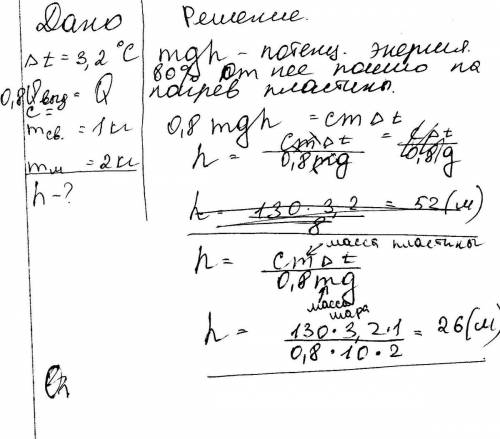 Дано
Δt = 3,2 °C
0,8 Qвыд = Q
c =
mсв. = 1 кг
mм = 2 кг
h - ?
Решение.
mgh - потенц. энергия.
80% от нее пошло на
нагрев пластины.
0,8 mgh = cmΔt
h = cmΔt / 0,8mg = cΔt / 0,8g
h = 130 · 3,2 / 8 = 52 (м)
h = cmΔt / 0,8mg
масса пластины
масса
шара
h = 130 · 3,2 · 1 / 0,8 · 10 · 2 = 26 (м)